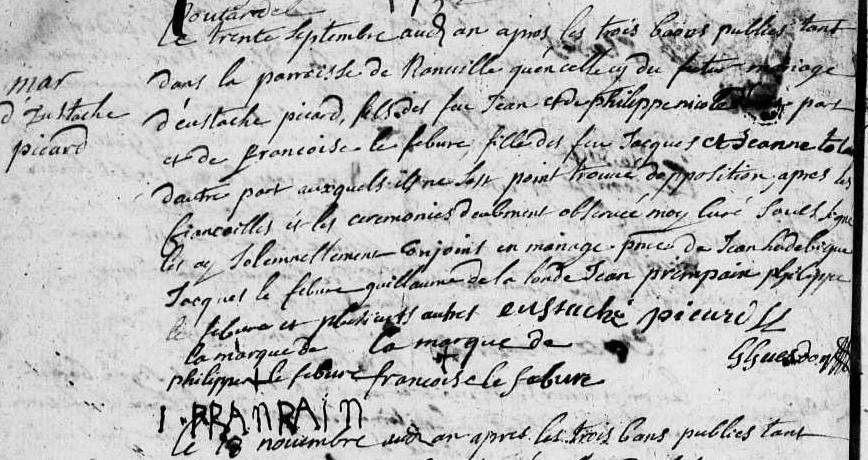 Le trente Septembre audit an apres les trois bans publies tant
mar
d'Eustache
picard
dans la parroisse de Ranville qu'en celle cy du futur mariage
d'eustache picard, fils des feu Jean et de philippe nicole part
et de francoise le febure, fille des feu Jacques et Jeanne
d'autre part auxquels il ne s'est point trouvé d'opposition, apres les
fiancailles et les ceremonies deubment observeé moy Curé Soussigné
les ay Solemnellement Conjoint en mariage pnce de Jean
Jacques le febure guillaume de la londe Jean prempain philippe
le febure et plusieurs autres eustache picard
la marque de la marque de
philippe + le febure francoise le febure
I. PRANPAIN
le 18 novembre audit an apres les trois bans publies tant